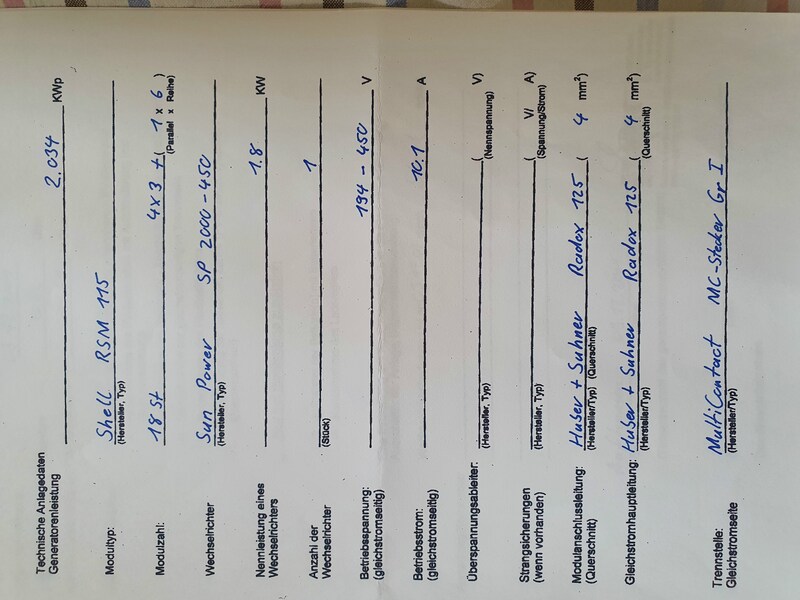 Technische Anlagedaten
Generatorenleistung 2.034 KWp
Modultyp: Shell RSM 115
(Hersteller, Typ)
Modulzahl: 18 St 4x3 + ( 1 x 6 )
(Parallel x Reihe)
Wechselrichter Sun Power SP 2000-450
(Hersteller, Typ)
Nennleistung eines
Wechselrichters 1.8 KW
Anzahl der
Wechselrichter 1
(Stück)
Betriebsspannung: 194 - 450 V
(gleichstromseitig)
Betriebsstrom: 10.1 A
(gleichstromseitig)
Überspannungsableiter: ( V)
(Hersteller, Typ) (Nennspannung)
Strangsicherungen ( V/ A)
(wenn vorhanden) (Hersteller, Typ) (Spannung/Strom)
Modulanschlussleitung: Huber + Suhner Radox 125 ( 4 mm²)
(Querschnitt) (Hersteller/Typ) (Querschnitt)
Gleichstromhauptleitung: Huber + Suhner Radox 125 ( 4 mm²)
(Hersteller/Typ) (Querschnitt)
Trennstelle: MultiContact MC-Stecker Gr I
Gleichstromseite (Hersteller/Typ)